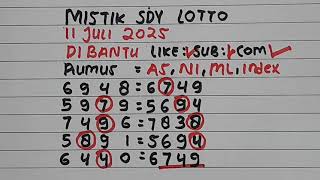 MISTIK SDY LOTTO
11 JULI 2025
DI BANTU LIKE: SUB: COM
RUMUS = AS, NI, ML, Index
6 9 4 8 = 6 7 4 9
5 9 7 9 = 5 6 9 4
7 4 9 6 = 7 8 3 8
5 8 9 1 = 5 6 9 4
6 4 4 0 = 6 7 4 9